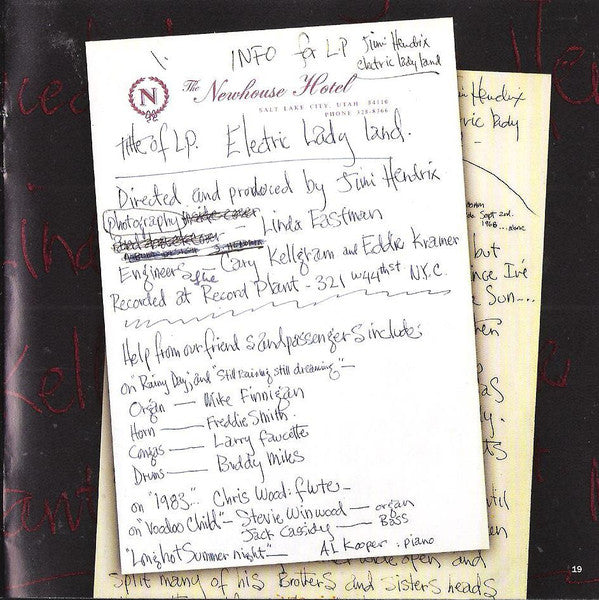 INFO for LP Jimi Hendrix
electric lady land
N
The Newhouse Hotel
SALT LAKE CITY, UTAH 84110
PHONE 328-8366
Title of LP. Electric Lady land.
Directed and produced by Jimi Hendrix
photography inside cover
— Linda Eastman
Engineers — Gary Kellgram and Eddie Kramer
Recorded at Record Plant - 321 w 44th st. N.Y.C.
Help from our friends and passengers includes
on "Rainy Day," and "Still Raining still dreaming" —
Organ — Mike Finnigan
Horn — Freddie Smith.
Congas — Larry faucette
Drums — Buddy Miles
on "1983... Chris Wood: flute —
on "Voodoo Child" — Stevie Winwood — organ
Jack Cassidy — Bass
"Long hot Summer night" — AL Kooper: piano
Hendrix
ric lady
Sept 2nd.
1968
but
nce I've
Sun-...
open and
split many of his Brothers and Sisters heads
19